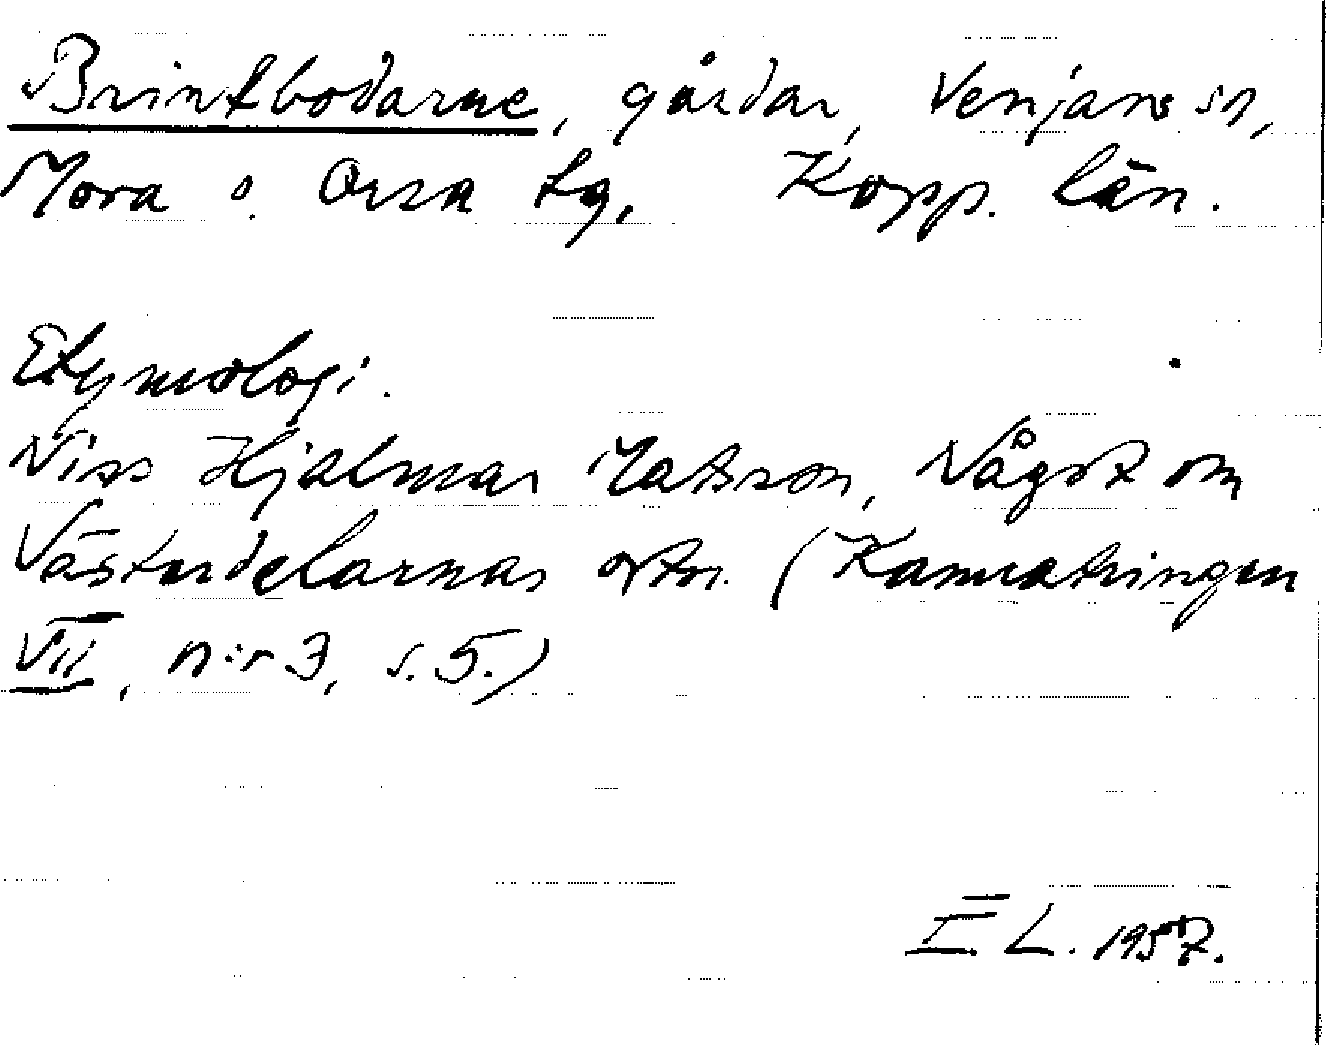 Brintbodarne, gårdar, Venjans sn,
Mora o. Orsa tg, Kopp. län.
Etymologi.
Niss Hjalmar Matsson, Något om
Västerdelarnas ortn. (Kamratringen
VII, n:r 3, s. 5.)
E L. 1957.